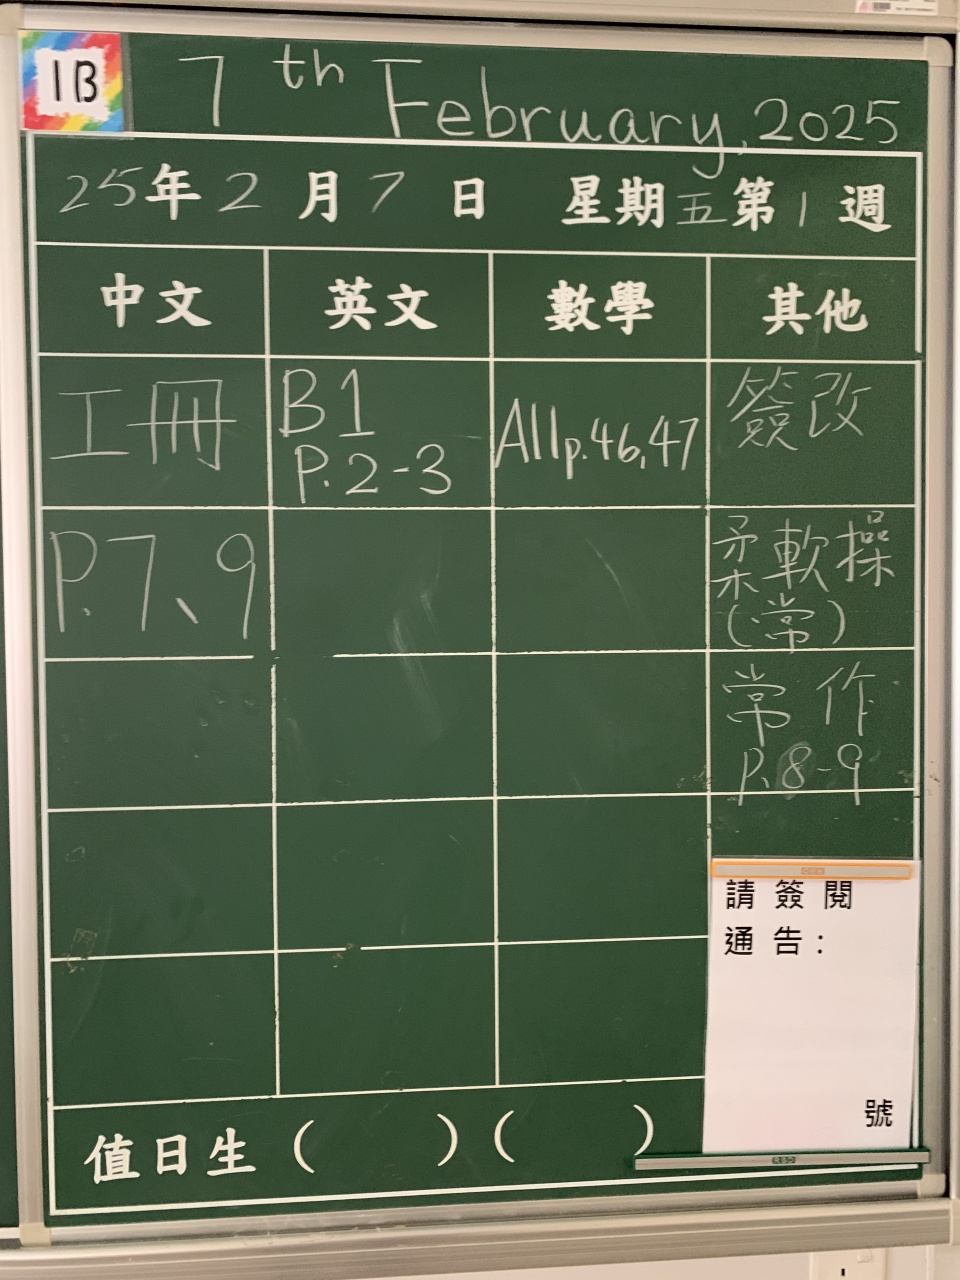 1B
7th February, 2025
25年2月7日 星期五第1週
中文 英文 數學 其他
工冊
P.7、9
B1
P.2-3
All p.46,47
簽改
柔軟操
(常)
常作
P.8-9
請簽閱
通告:
號
值日生( )( )